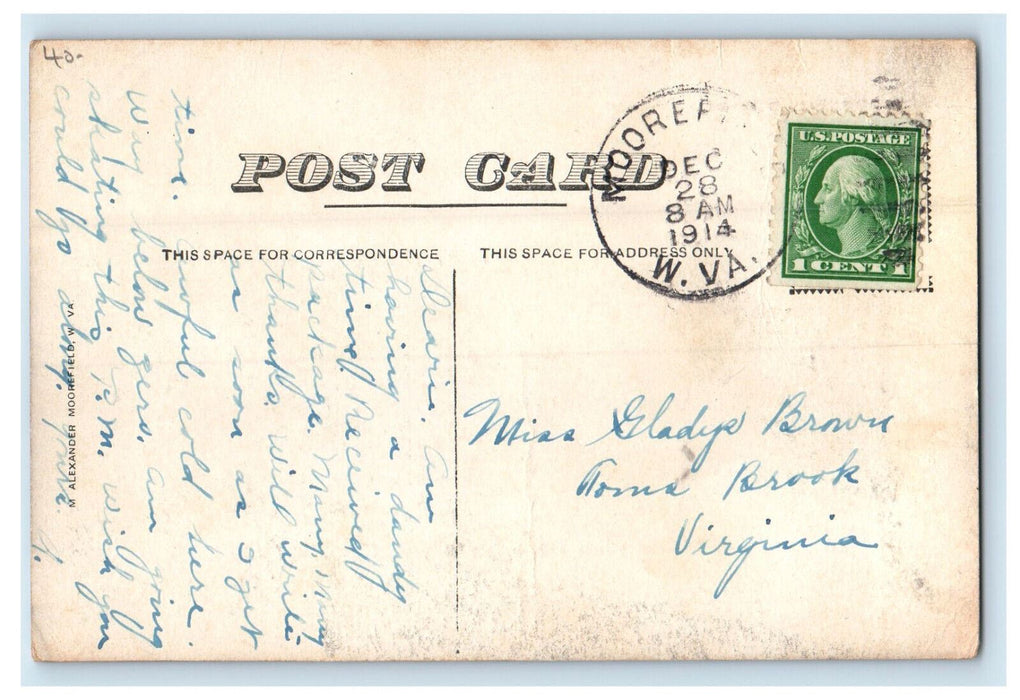 40.
POST CARD
THIS SPACE FOR CORRESPONDENCE
THIS SPACE FOR ADDRESS ONLY
MOOREF
DEC
28
8 AM
1914
W. VA.
U.S. POSTAGE
1 CENT 1
Dearie. Am
having a dandy
time. Received
package. Many, Many
thanks. Will write
as soon as I get
time.
Awful cold here.
Way below zero. am going
skating this P.M. wish you
could go along.
G.
Miss Gladys Brown
Toms Brook
Virginia
M ALEXANDER MOOREFIELD, W VA